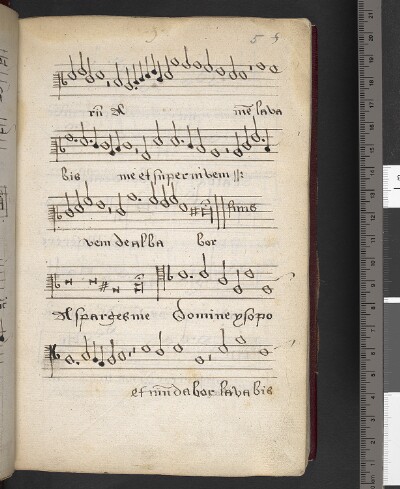 me lava
bis me et super nivem
finis
vem dealba bor
Asparges me Domine ysopo
et mundabor lava bis